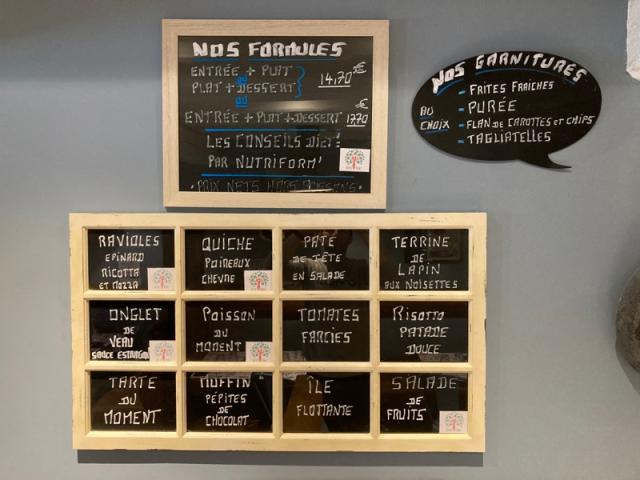 NOS FORMULES
ENTRÉE + PLAT
ou
PLAT + DESSERT
14,70 €
ou
ENTRÉE + PLAT + DESSERT 17,70 €
LES CONSEILS DIET!
PAR NUTRIFORM'
• PRIX NETS HORS BOISSONS •
NOS GARNITURES
AU CHOIX
- FRITES FRAICHES
- PURÉE
- FLAN DE CAROTTES ET CHIPS
- TAGLIATELLES
RAVIOLES
EPINARD
RICOTTA
ET MOZZA
QUICHE
POIREAUX
CHEVRE
PATÉ
DE TÊTE
EN SALADE
TERRINE
DE
LAPIN
AUX NOISETTES
ONGLET
DE
VEAU
SAUCE ESTRAGON
POISSON
DU
MOMENT
TOMATES
FARCIES
RISOTTO
PATATE
DOUCE
TARTE
DU
MOMENT
MUFFIN
PÉPITES
DE
CHOCOLAT
ÎLE
FLOTTANTE
SALADE
DE
FRUITS